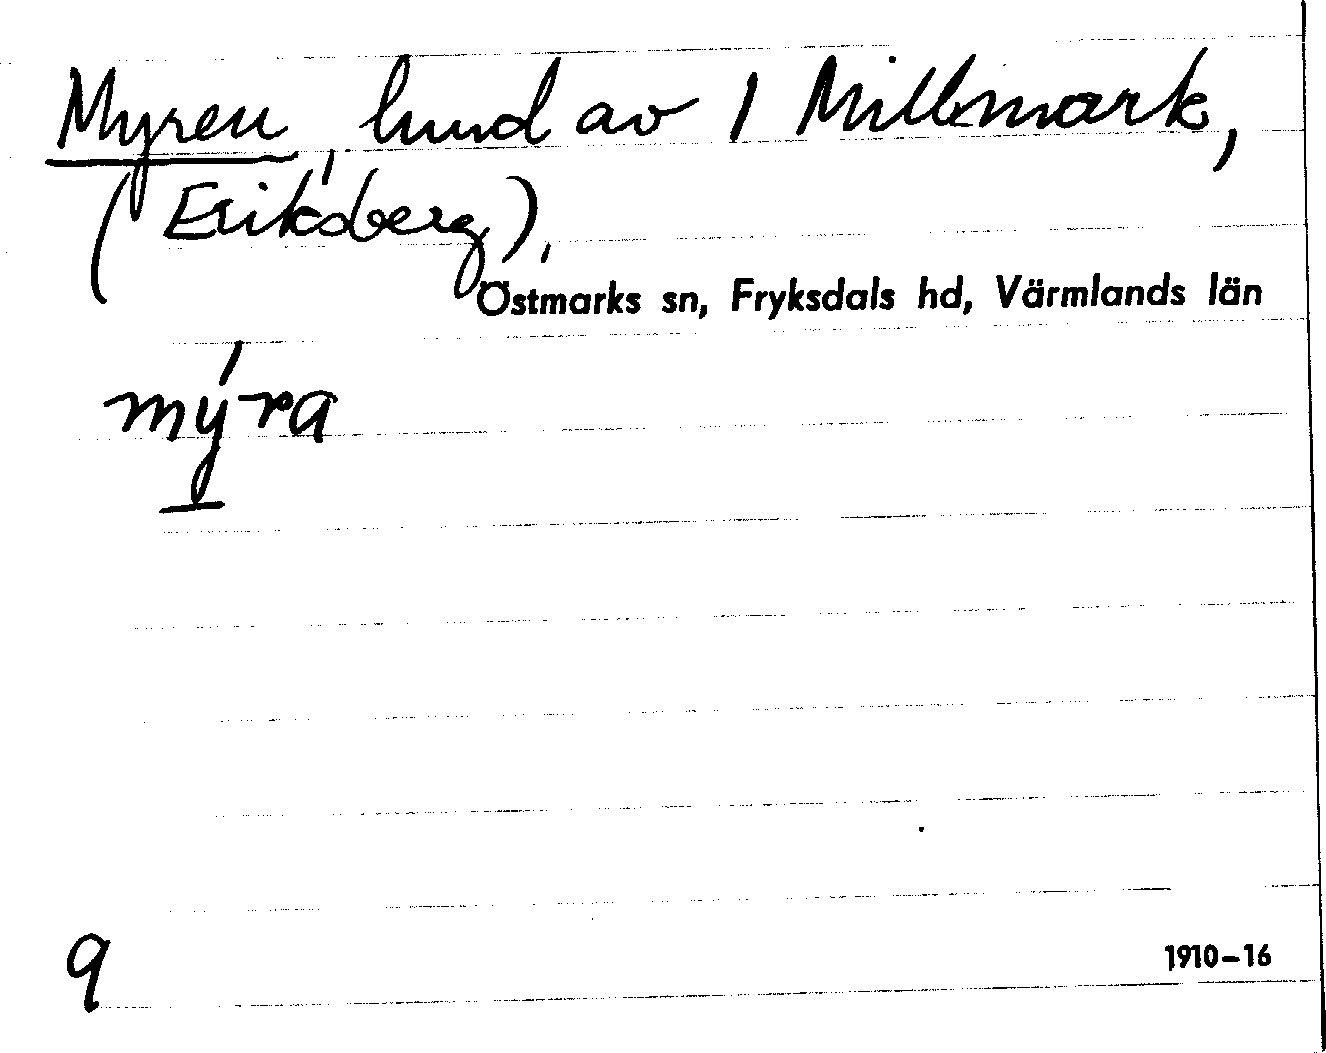 Myren, lund av 1 Millmark,
(Eriksberg),
Östmarks sn, Fryksdals hd, Värmlands län
mýra
9
1910–16